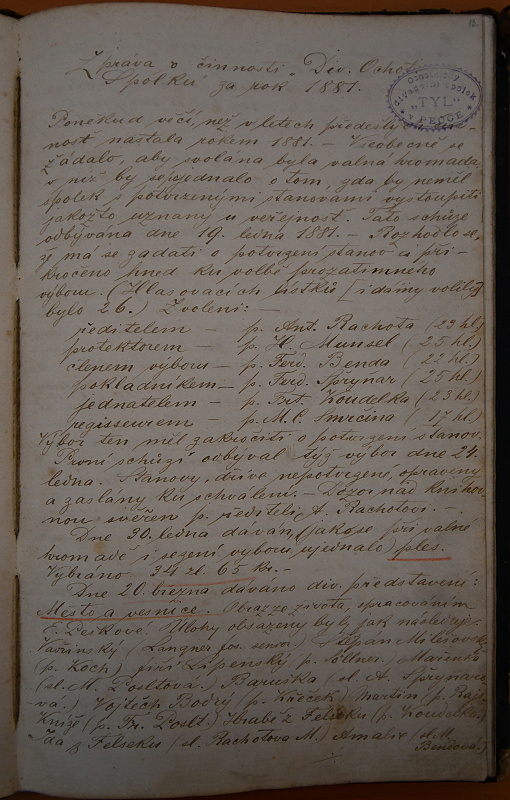 12.
Zpráva o činnosti „Div. Ochot.
Spolku“ za rok 1881.
Ochotnický
divadelní spolek
„TYL“
v PECCE
Poněkud věčí, než v letech předešlých
nosť nastala rokem 1881. – Všeobecně se
žádalo, aby svolána byla valná hromada,
v níž by se jednalo o tom, zda by neměl
spolek s potvrzenými stanovami vystoupiti
jakožto uznaný u veřejnost. Tato schůze
odbývána dne 19. ledna 1881. – Rozhodlo se,
že má se žádati o potvrzení stanov a při-
kročeno hned ku volbě prozatimného
výboru. (Hlasovacích lístků [i dámy volily]
bylo 26.) Zvoleni: –
ředitelem – p. Ant. Rachota (23 hl.)
protektorem – p. H. Munsel (25 hl.)
členem výboru – p. Ferd. Benda (22 hl.)
pokladníkem – p. Ferd. Sprynar (25 hl.)
jednatelem – p. Frt. Koudelka (23 hl.)
regisseurem – p. M. C. Smrčina (17 hl.)
Výbor ten měl zakročiti o potvrzení stanov.
První schůzi odbýval týž výbor dne 24.
ledna. Stanovy, dříve nepotvrzené, opraveny
a zaslány ku schválení. – Dozor nad knihov-
nou svěřen p. řediteli, A. Rachotovi. –
Dne 30. ledna dáván (jak se při valné
hromadě i sezení výboru ujednalo) ples.
Vybráno 34 zl. 65 kr. –
Dne 20. března dáváno div. představení:
Město a vesnice. Obraz ze života, spracovaním
E. Peškové. Úlohy obsazeny byly jak následuje:
Vavřinský (Langner Jos. senior.) Štěpan Milešovský
(p. Koch) Jiří Lipenský (p. Söllner) Mařenka
(sl. M. Posltová.) Baruška (sl. A. Sprynaro-
vá.) Vojtěch Bodrý (p. Křeček) Martin (p. Rajs)
Kníže (p. Fr. Poslt.) Hrabě z Felseku (p. Koudelka)
Ida z Felseku (sl. Rachotova M.) Amalie (sl. M.
Bendová.)